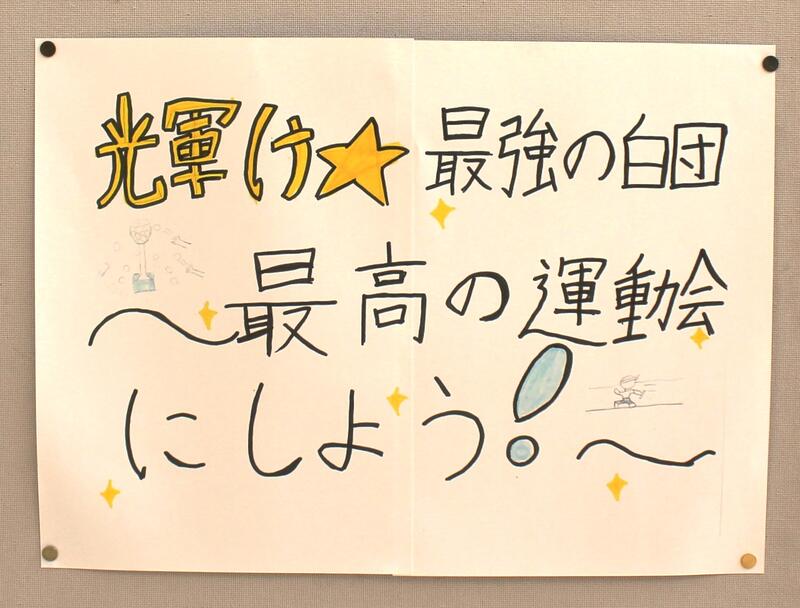 光輝け★最強の白団
〜最高の運動会
にしよう!〜